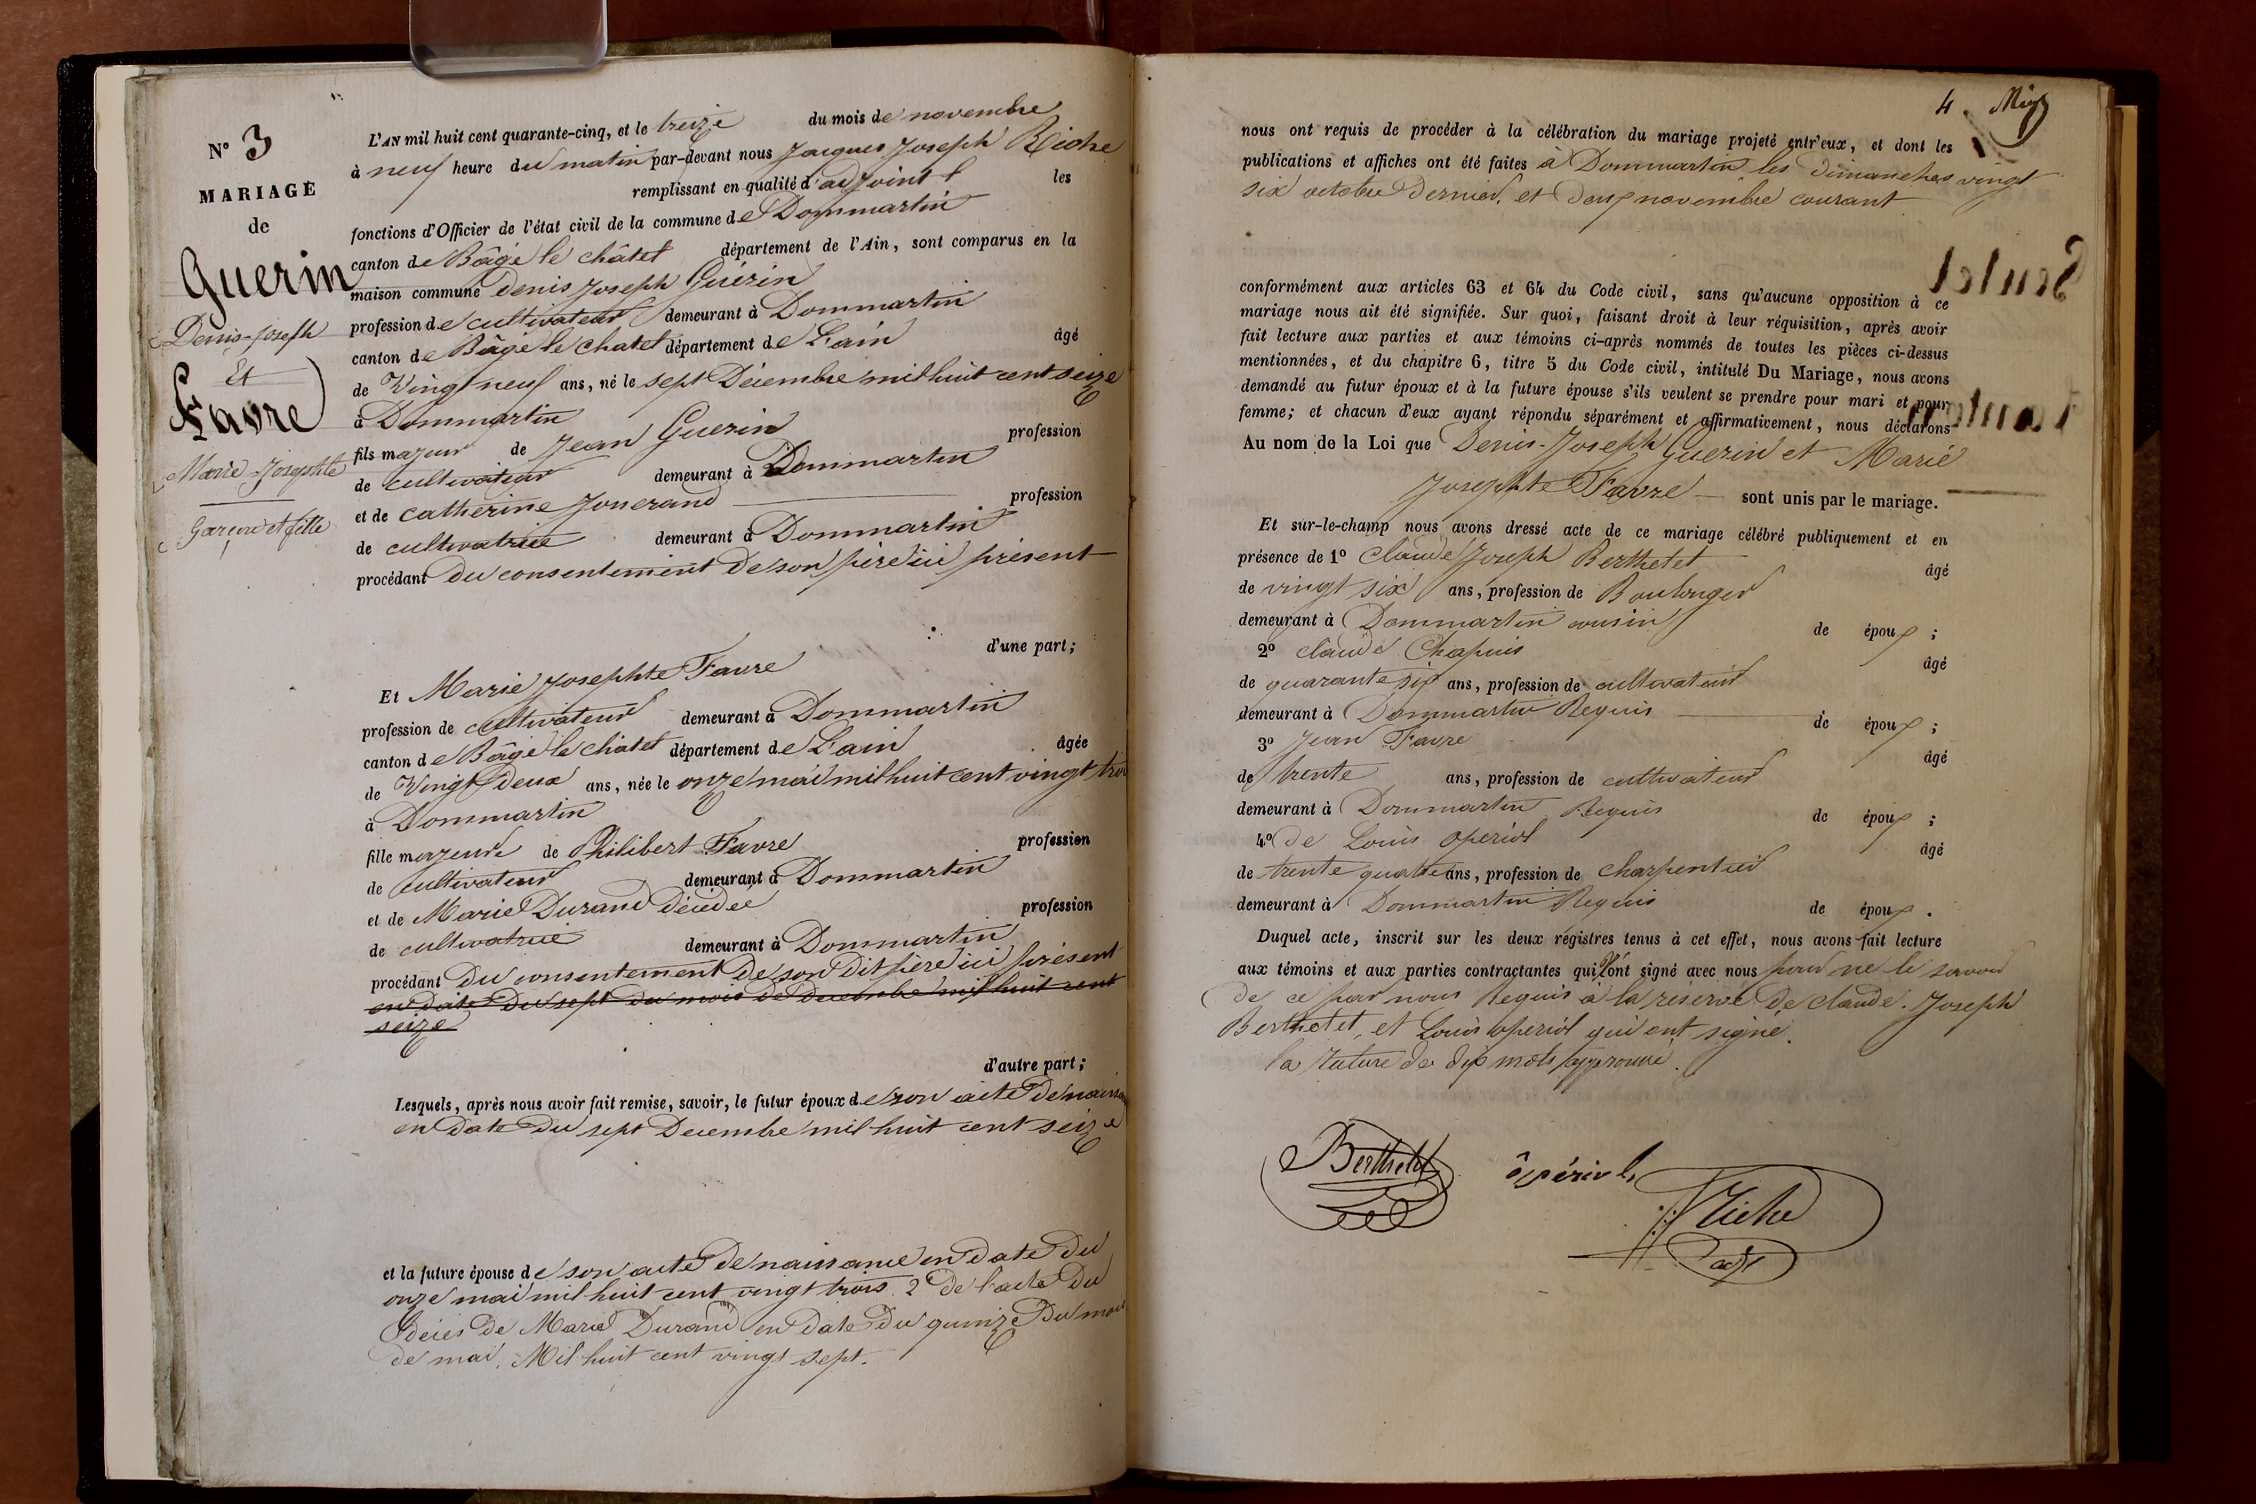 N° 3
MARIAGE
de
Guerin
Denis-Joseph
Et
Favre
Marie-Josephte
Garçon et fille
L'AN mil huit cent quarante-cinq, et le treize du mois de novembre
à neuf heure du matin par-devant nous Jacques Joseph Riche
remplissant en qualité d'adjoint les
fonctions d'Officier de l'état civil de la commune de Dommartin
canton de Bâgé le châtel département de l'Ain, sont comparus en la
maison commune Denis Joseph Guérin
profession de cultivateur demeurant à Dommartin
canton de Bâgé le chatel département de L'ain âgé
de Vingt neuf ans, né le sept Décembre mil huit cent seize
à Dommartin
fils majeur de Jean Guerin profession
de cultivateur demeurant à Dommartin
et de catherine Jouerand profession
de cultivatrice demeurant à Dommartin
procédant du consentement de son père ici présent
d'une part;
Et Marie Josephte Favre
profession de cultivateur demeurant à Dommartin
canton de Bâgé le châtel département de L'ain âgée
de Vingt Deux ans, née le onze mai mil huit cent vingt trois
à Dommartin
fille majeure de Philibert Favre profession
de cultivateur demeurant à Dommartin
et de Marie Durand décédée profession
de cultivatrice demeurant à Dommartin
procédant du consentement de son dit père ici présent
en date du sept du mois de Decembre mil huit cent
seize
d'autre part;
Lesquels, après nous avoir fait remise, savoir, le futur époux de son acte de
en date du sept Decembre mil huit cent seize
et la future épouse de son acte de naissance en date du
onze mai mil huit cent vingt trois 2° de l'acte du
déces de Marie Durand en date du quinze du mois
de mai, Mil huit cent vingt sept.
4
nous ont requis de procéder à la célébration du mariage projeté entr'eux, et dont les
publications et affiches ont été faites à Dommartin les dimanches vingt
six octobre dernier, et deux novembre courant
conformément aux articles 63 et 64 du Code civil, sans qu'aucune opposition à ce
mariage nous ait été signifiée. Sur quoi, faisant droit à leur réquisition, après avoir
fait lecture aux parties et aux témoins ci-après nommés de toutes les pièces ci-dessus
mentionnées, et du chapitre 6, titre 5 du Code civil, intitulé Du Mariage, nous avons
demandé au futur époux et à la future épouse s'ils veulent se prendre pour mari et pour
femme; et chacun d'eux ayant répondu séparément et affirmativement, nous déclarons
Au nom de la Loi que Denis-Joseph Guerin et Marie
Josephte Favre sont unis par le mariage.
Et sur-le-champ nous avons dressé acte de ce mariage célébré publiquement et en
présence de 1° Claude Joseph Berthelet âgé
de vingt six ans, profession de Boulonger
demeurant à Dommartin cousin de époux;
2° claude Chapuis âgé
de quarante six ans, profession de cultivateur
demeurant à Dommartin Requis de époux;
3° Jean Favre âgé
de trente ans, profession de cultivateur
demeurant à Dommartin Requis de époux;
4° de Louis Operiol âgé
de trente quatre ans, profession de charpentier
demeurant à Dommartin Requis de époux.
Duquel acte, inscrit sur les deux régistres tenus à cet effet, nous avons fait lecture
aux témoins et aux parties contractantes qui n'ont signé avec nous pour ne le savoir
de ce par nous Requis à la réserve de claude-Joseph
Berthelet, et Louis operiol qui ont signé.
la rature de dix mots approuvé.
Berthelet
opériol
Riche
adjt